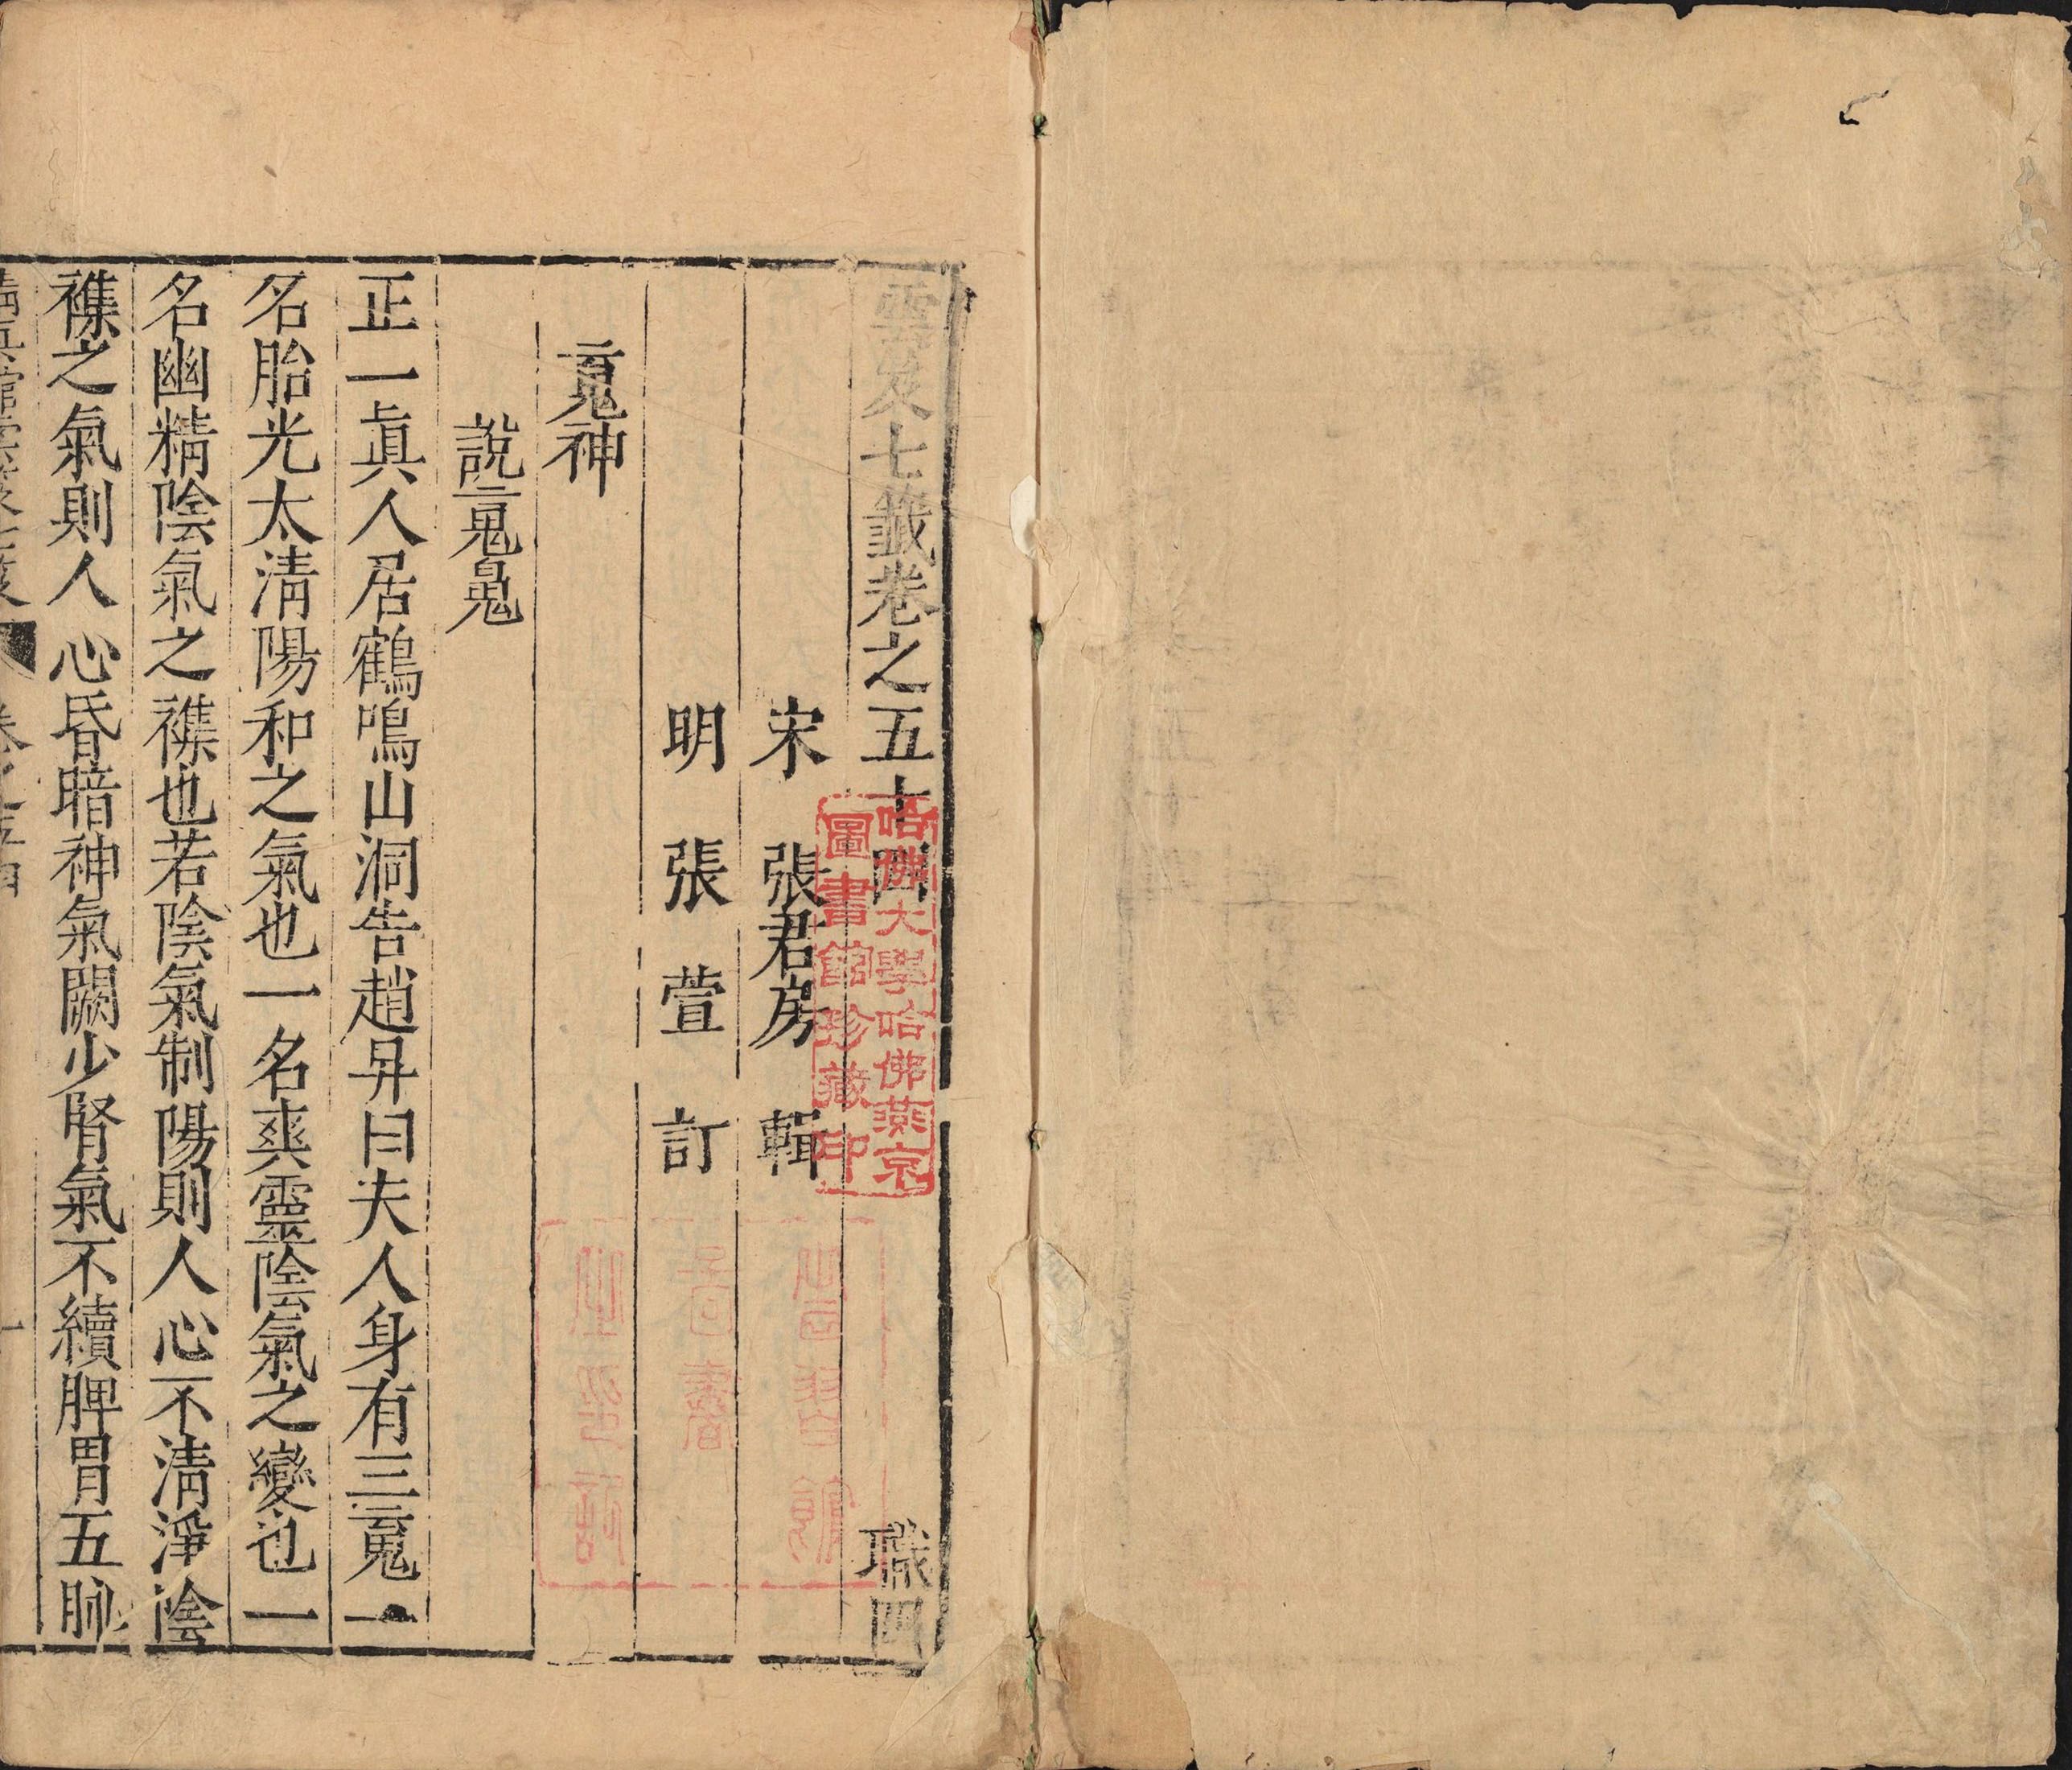 雲笈七籤卷之五十四 職四
宋 張君房 輯
明 張萱 訂
䰟神
說䰟䰟
正一眞人居鶴鳴山洞告趙昇曰夫人身有三䰟一
名胎光太清陽和之氣也一名爽靈陰氣之變也一
名幽精陰氣之襍也若陰氣制陽則人心不清淨陰
襍之氣則人心昏暗神氣闕少腎氣不續脾胃五脉
清真館雲笈七籤 卷之五十四 一
哈佛大學哈佛燕京
圖書館珍藏印